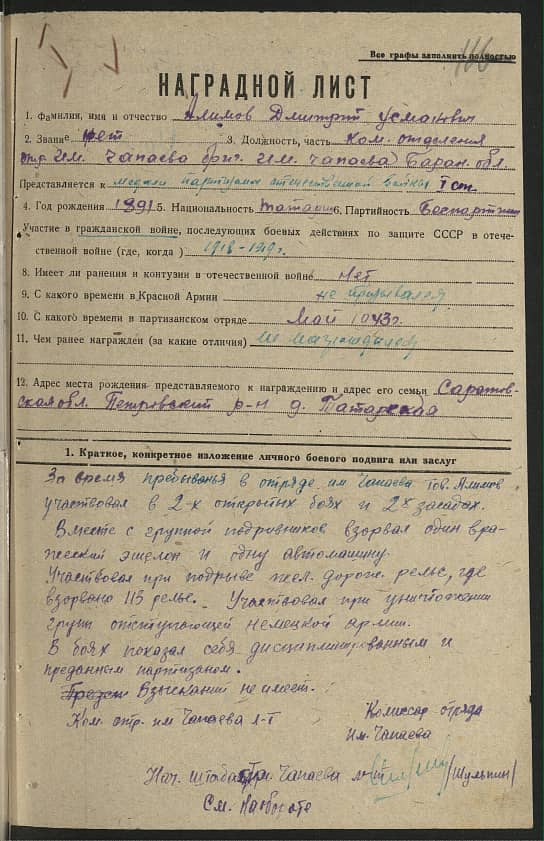 166
Все графы заполнить полностью
НАГРАДНОЙ ЛИСТ
1. Фамилия, имя и отчество Алимов Дмитрий Усманович
2. Звание нет 3. Должность, часть Ком. отделения
отр. им. Чапаева бриг. им. Чапаева Баран. обл.
Представляется к медали партизана отечественной войны I ст.
4. Год рождения 1891 5. Национальность татарин 6. Партийность Беспартийн
Участие в гражданской войне, последующих боевых действиях по защите СССР в отече-
ственной войне (где, когда) 1918-1919г.
8. Имеет ли ранения и контузии в отечественной войне Нет
9. С какого времени в Красной Армии не призывался
10. С какого времени в партизанском отряде Май 1943г.
11. Чем ранее награжден (за какие отличия) не награждался
12. Адрес места рождения представляемого к награждению и адрес его семьи Саратов-
ская обл. Петровский р-н д. Татарская
1. Краткое, конкретное изложение личного боевого подвига или заслуг
За время пребыванья в отряде им Чапаева тов. Алимов
участвовал в 2-х открытых боях и 2х засадах.
Вместе с группой подрывников взорвал один вра-
жеский эшелон и одну автомашину.
Участвовал при подрыве жел. дорожн. рельс, где
взорвано 113 рельс. Участвовал при уничтожении
групп отступающей немецкой армии.
В боях показал себя дисциплинированным и
преданным партизаном.
Взысканий не имеет.
Ком. отр. им Чапаева л-т Комиссар отряда
им. Чапаева
Нач. штаба бр. Чапаева л-т /Шульпин/
См. на обороте